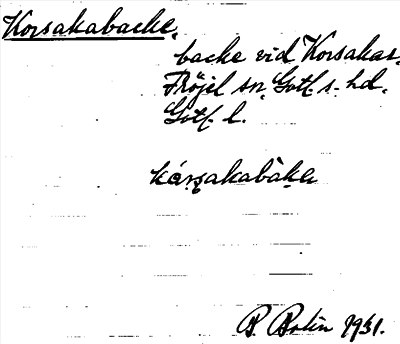 Korsakabacke,
backe vid Korsakas,
Fröjel sn. Gotl. s. hd.
Gotl. l.
kårsakabàka
B. Bolin 1931.